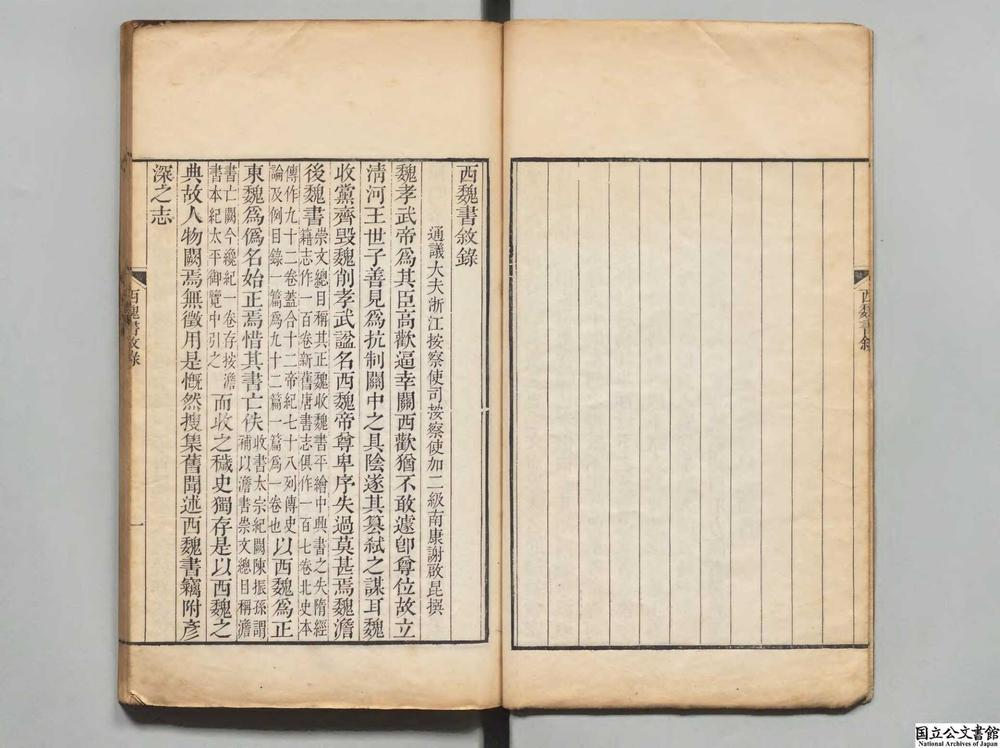 西魏書敘錄
通議大夫浙江按察使司按察使加二級南康謝啟昆撰
魏孝武帝爲其臣高歡逼幸關西歡猶不敢遽卽尊位故立
淸河王世子善見爲抗制關中之具陰遂其篡弒之謀耳魏
收黨齊毀魏削孝武諡名西魏帝尊卑序失過莫甚焉魏澹
後魏書崇文總目稱其正魏收魏書平繪中興書之失隋經
籍志作一百卷新舊唐書志俱作一百七卷北史本
傳作九十二卷蓋合十二帝紀七十八列傳史
論及例目錄一篇爲九十二篇一篇爲一卷也以西魏爲正
東魏爲僞名始正焉惜其書亡佚收書太宗紀闕陳振孫謂
補以澹書崇文總目稱澹
書亡闕今纔紀一卷存按澹
書本紀太平御覽中引之而收之穢史獨存是以西魏之
典故人物闕焉無徵用是慨然搜集舊聞述西魏書竊附彥
深之志
西魏書敘錄
一
西魏書敘
国立公文書館
National Archives of Japan